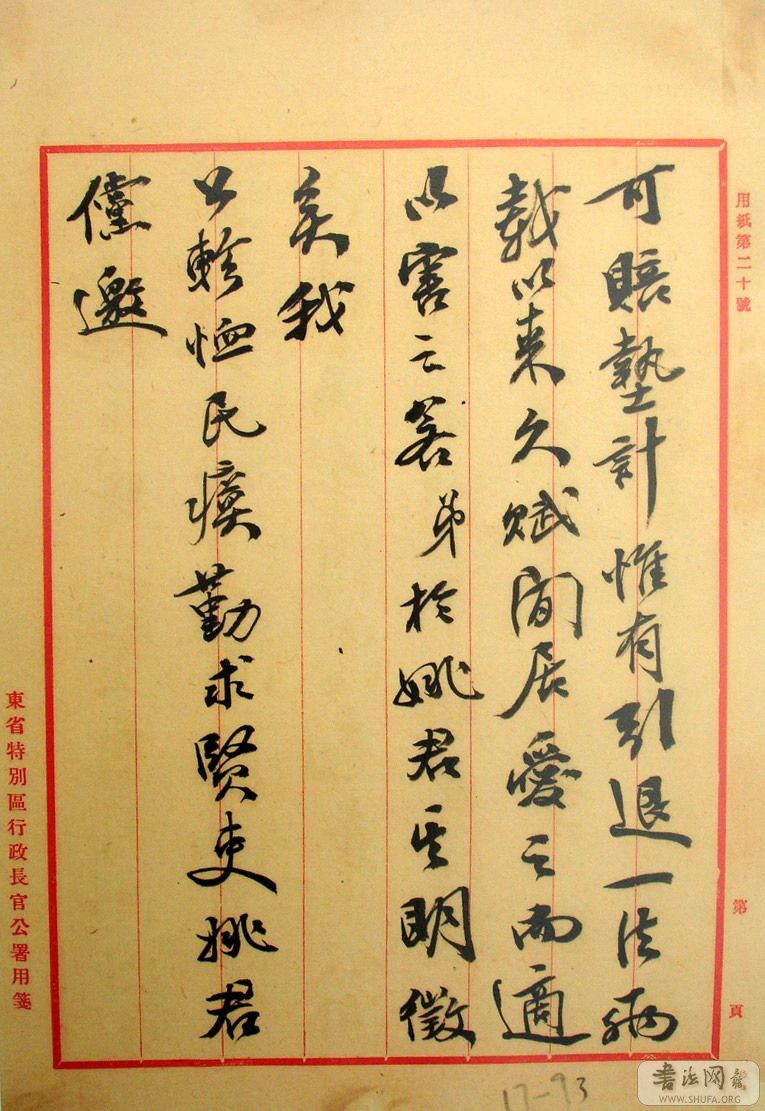 用紙第二十號
第
頁
可賠墊計惟有引退一法兩
載以來久賦閒居愛之而適
以害之若弟於姚君其明徵
矣我
公軫恤民瘼勤求賢吏姚君
儻邀
東省特別區行政長官公署用箋
17-93
書法网
WWW.SHUFA.ORG